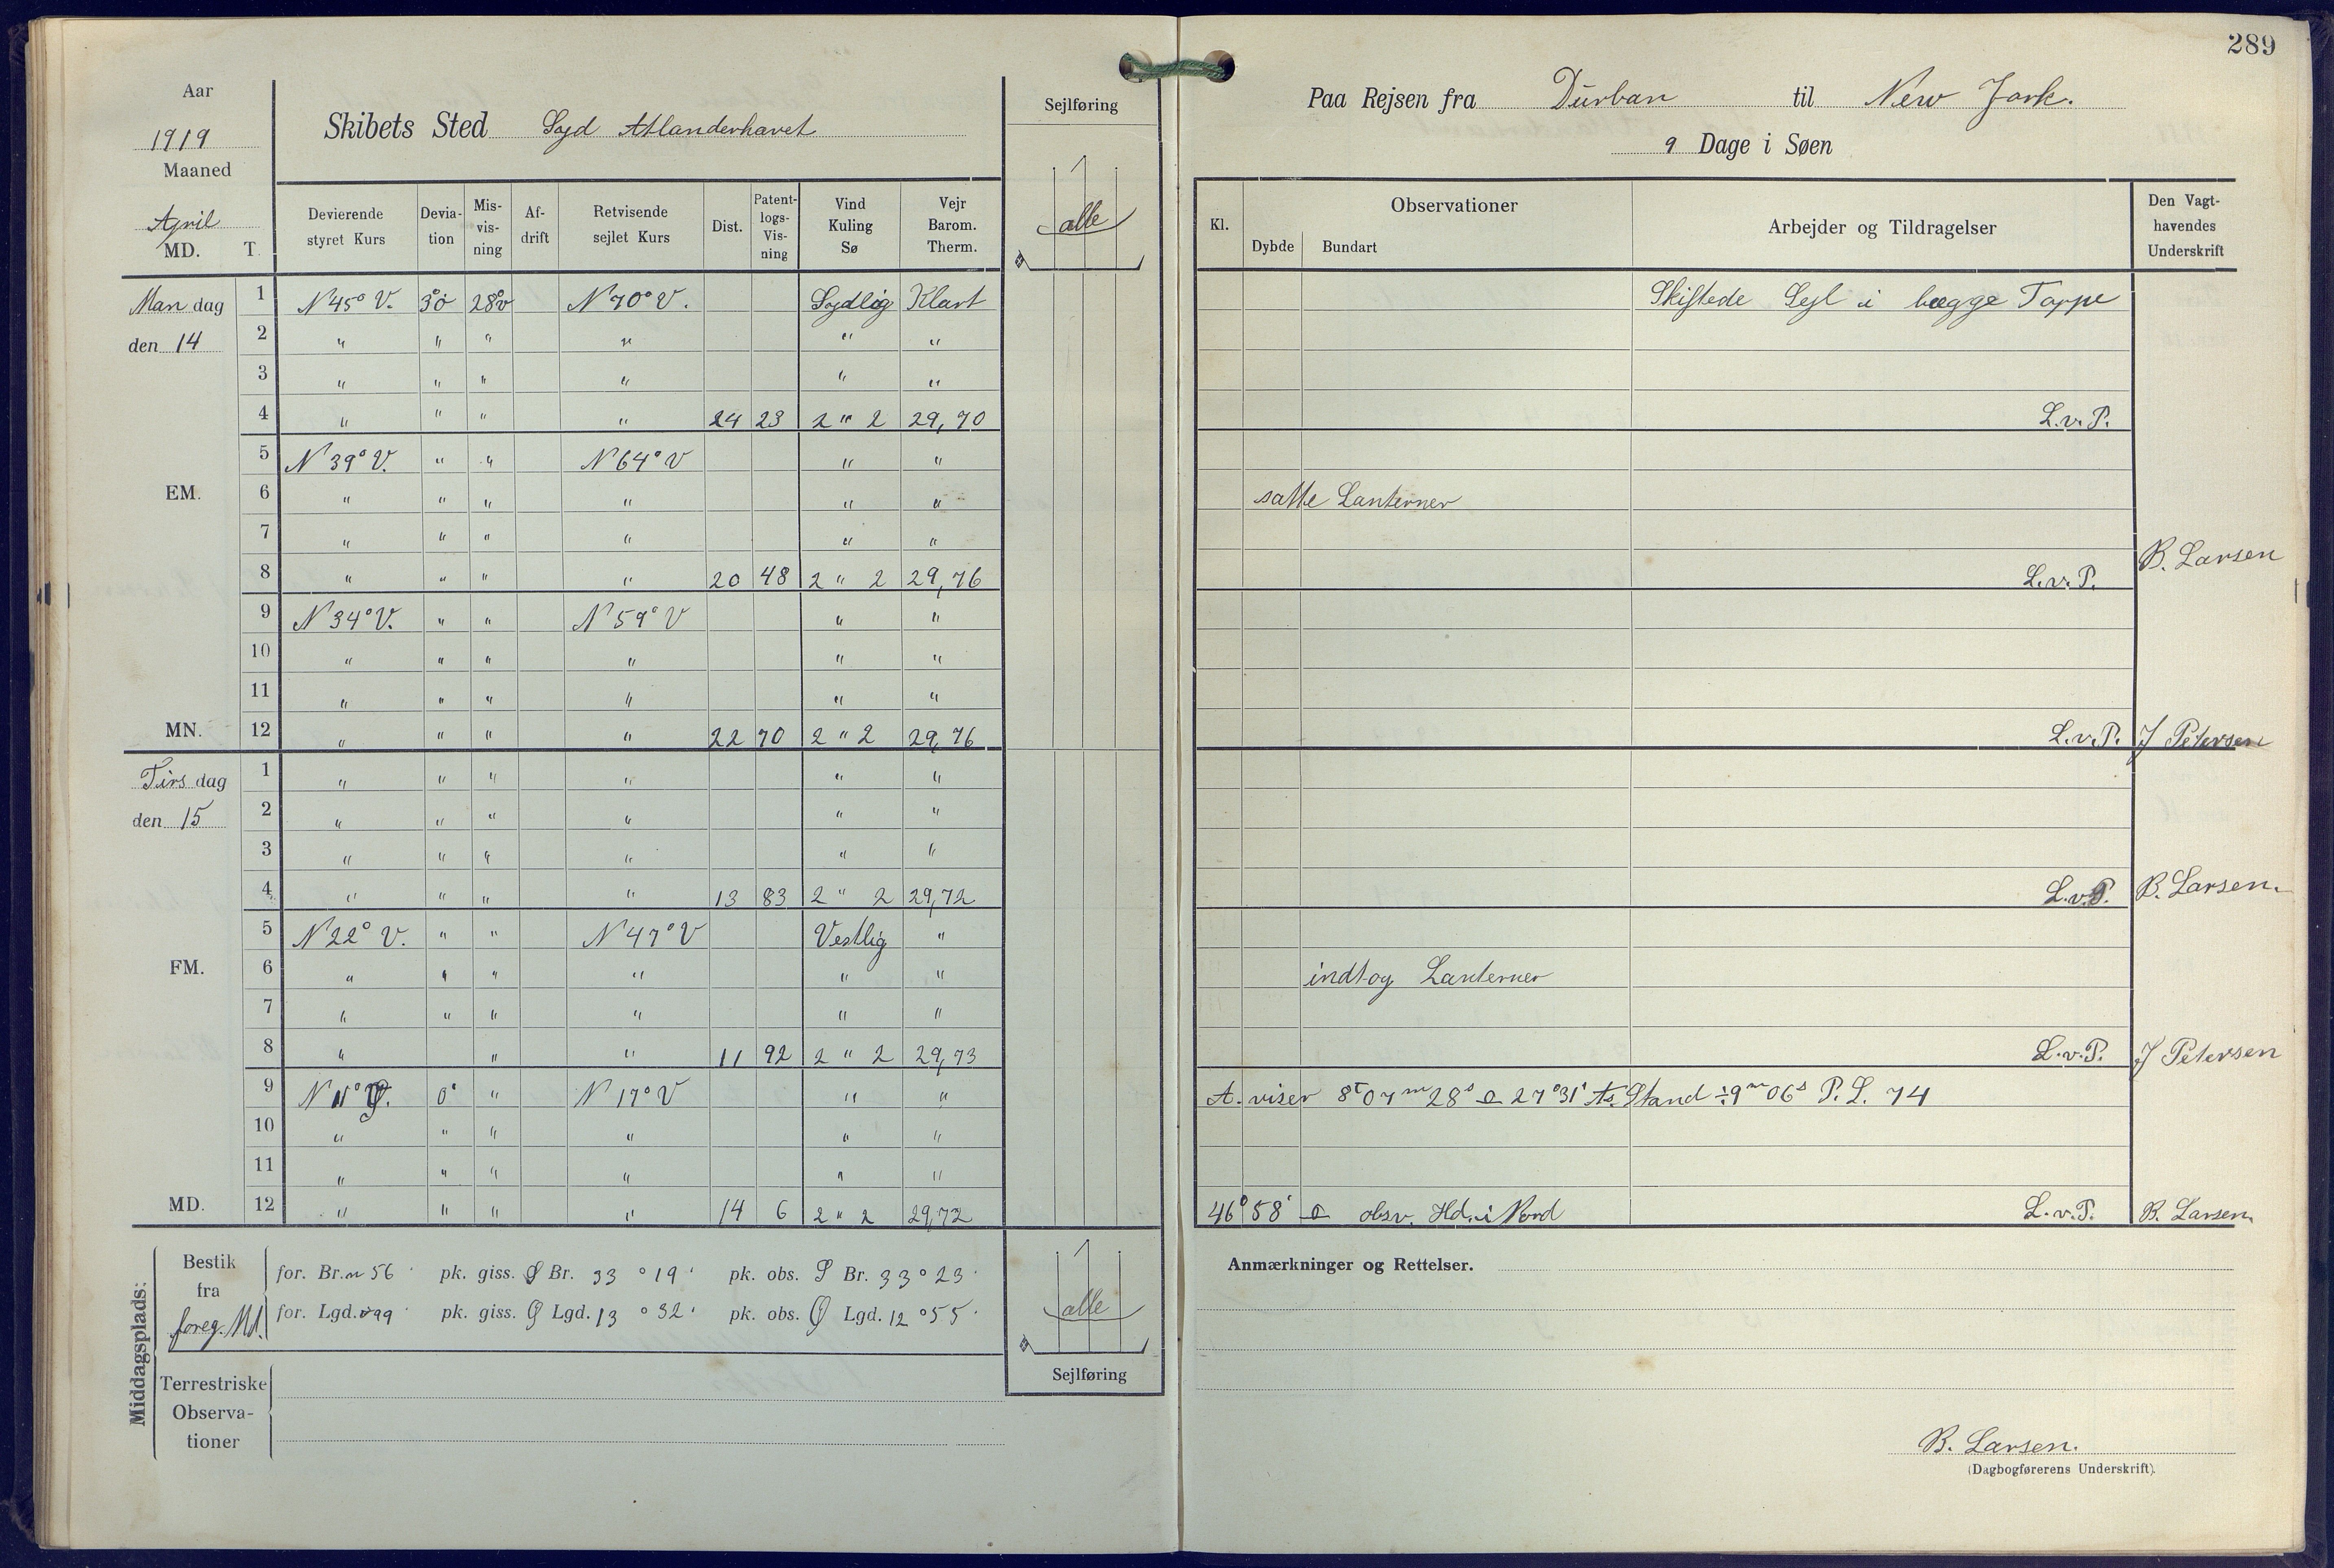 289
Aar
1919
Maaned
April
MD. T.
Skibets Sted Syd Atlanderhavet
Devierende styret Kurs
Deviation
Misvisning
Afdrift
Retvisende sejlet Kurs
Dist.
Patentlogs-Visning
Vind Kuling Sø
Vejr Barom. Therm.
Sejlføring
alle
Mandag 1 N 45° V. 3° ö 28° v N 70° V. Sydlig Klart
den 14 2 " " " " " "
3 " " " " " "
4 " " " " 24 23 2 " 2 29,70
5 N 39° V. " " N 64° V " "
EM. 6 " " " " " "
7 " " " " " "
8 " " " " 20 48 2 " 2 29,76
9 N 34° V. " " N 59° V " "
10 " " " " " "
11 " " " " " "
MN. 12 " " " " 22 70 2 " 2 29,76
Tirsdag 1 " " " " " "
den 15 2 " " " " " "
3 " " " " " "
4 " " " " 13 83 2 " 2 29,72
5 N 22° V. " " N 47° V Vestlig "
FM. 6 " " " " " "
7 " " " " " "
8 " " " 11 92 2 " 2 29,73
9 N 11° 0° " N 17° V " "
10 " " " " " "
11 " " " " " "
MD. 12 " " " " 14 6 2 " 2 29,72
Middagsplads:
Bestik fra foreg. Md.
for. Br. n 56 ' pk. giss. S Br. 33 ° 19 ' pk. obs. S Br. 33 ° 23 '
for. Lgd. v 99 ' pk. giss. Ø Lgd. 13 ° 32 ' pk. obs. Ø Lgd. 12 ° 55 '
Terrestriske Observationer
alle
Sejlføring
Paa Rejsen fra Durban til New Jork.
9 Dage i Søen
Kl.
Observationer
Dybde Bundart
Arbejder og Tildragelser
Den Vagthavendes Underskrift
Skiftede Sejl i begge Toppe
L.v.P.
satte Lanterner
L.v.P. B. Larsen
L.v.P. J Petersen
L.v.P. B. Larsen.
indtog Lanterner
L.v.P. J Petersen
A. viser 8 07 m 28 s 27° 31' As. Stand ÷ 9 m 06 s P. L. 74
46° 58' obsv. Hd. i Nord L.v.P. B. Larsen
Anmærkninger og Rettelser.
B. Larsen.
(Dagbogførerens Underskrift).